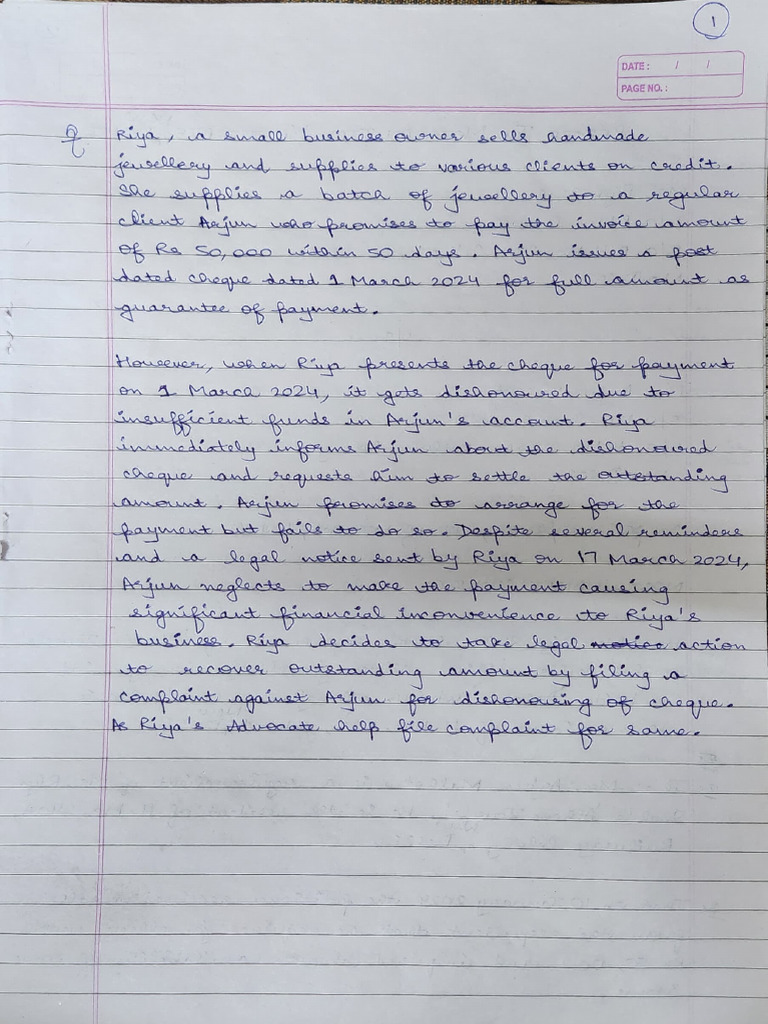 1
DATE: / /
PAGE NO.:
Q Riya, a small business owner sells handmade
jewellery and supplies to various clients on credit.
She supplies a batch of jewellery to a regular
client Arjun who promises to pay the invoice amount
of Rs 50,000 within 50 days. Arjun issues a post
dated cheque dated 1 March 2024 for full amount as
guarantee of payment.
However, when Riya presents the cheque for payment
on 1 March 2024, it gets dishonoured due to
insufficient funds in Arjun's account. Riya
immediately informs Arjun about the dishonoured
cheque and requests him to settle the outstanding
amount. Arjun promises to arrange for the
payment but fails to do so. Despite several reminders
and a legal notice sent by Riya on 17 March 2024,
Arjun neglects to make the payment causing
significant financial inconvenience to Riya's
business. Riya decides to take legal notice action
to recover outstanding amount by filing a
complaint against Arjun for dishonouring of cheque.
As Riya's Advocate help file complaint for same.